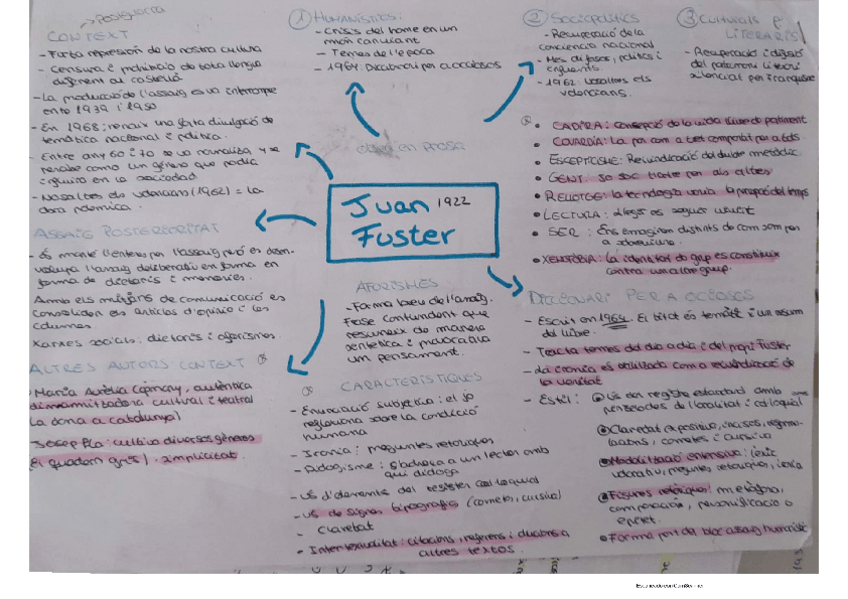 → postguerra
CONTEXT
- Forta repressió de la nostra cultura
- Censura i prohibició de tota llengua
diferent al castellà
- La producció de l'assaig es va interrompre
entre 1939 i 1950
- En 1968: renaix una forta divulgació de
temàtica nacional i política.
- Entre any 60 i 70 es va normalitza, y se
percebe como un género que podía
en la sociedad
- Nosaltres els valencians (1962) = la
dora polémica.
ASSAIG POSTERIORITAT
- Es manté l'interés per l'assaig però es desen-
volupa l'assaig deliberatiu en forma en
forma de dietaris i memòries.
Amb els mitjans de comunicació es
consoliden els articles d'opinió i les
columnes
Xarxes socials: dietaris i aforismes
ALTRES AUTORS CONTEXT
Maria Aurèlia Capmany, autèntica
dinamitzadora cultural i teatral
(La dona a catalunya)
Josep Pla: cultiva diversos gèneres
El quadern gris). simplicitat.
① HUMANÍSTICS:
- Crisis del home en un
món canviant
- Temes de l'època
- 1964 Diccionari per a ociosos
② Sociopolítics
- Recuperació de la
conciencia nacional
- Més difusos, polítics i
- 1962: Nosaltres els
valencians.
③ Culturals i
LITERARIS
- Recuperació i
del patrimoni literari
silenciat per franquisme
obra en prosa
Juan 1922
Fuster
AFORISMES
- Forma breu de l'assaig.
Frase contundent que
resumeix de manera
sintètica i provocativa
un pensament.
CARACTERÍSTIQUES
- Enunciació subjectiva: el jo
reflexiona sobre la condició
humana
- Ironia: preguntes retòriques
- Dialogisme: s'adreça a un lector amb
qui dialoga
- Us d'elements del registre col·loquial
- us de signes tipogràfics (cometes, cursiva)
- Claretat
- Intertextualitat: citacions, referens i al·lusions a
altres textos.
• CADIRA: concepció de la vida
• COVARDIA: La por com a tret compartit per a tots.
• ESCEPTICISME: Reivindicació del dubte metòdic.
• GENT: Jo soc tractre per als altres
• RELLOTGE: la tecnologia varia la percepció del temps
• LECTURA: llegir es seguir
• SER: Ens imaginen distints de com som per
a
• XENOFÒBIA: la identitat de grup es constitueix
contra un altre grup.
DICCIONARI PER A OCIOSOS
- Escrit en 1964. El títol és temàtic i un resum
del llibre.
- Tracta temes del dia a dia i del propi Fuster
- La ironia es utilitzada com a reivindicació de
la veritat
- Estil: Us del registre estàndard amb
pinzellades de l'oralitat i col·loquial
Claretat expositiva, incisos,
cometes i cursiva
Modalització extensiva: lèxic
valoratiu, preguntes retòriques, ironia
Figures retòriques: metàfora,
comparación, personificació o
epítet.
• Forma part del bloc assaig humanístic
Escaneado con CamScanner